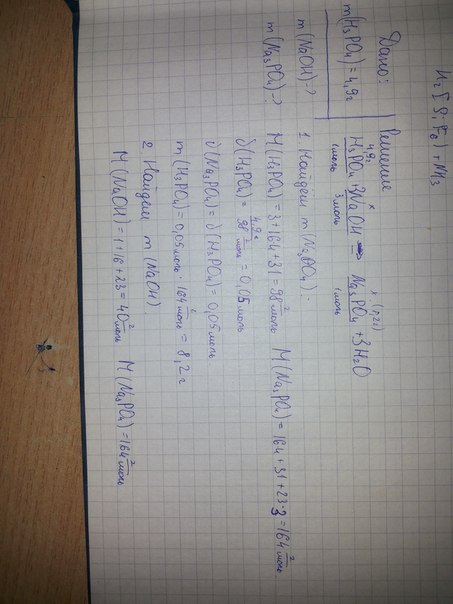 H₂[SiF₆] + NH₃
Дано:
m(H₃PO₄) = 4,9г
m(NaOH) - ?
m(Na₃PO₄) - ?
Решение
4,9г x y (р2г)
H₃PO₄ + 3NaOH ⟹ Na₃PO₄ + 3H₂O
1моль 3моль 1моль
1. Найдём m(Na₃PO₄):
M(H₃PO₄) = 3 + 164 + 31 = 98 г/моль M(Na₃PO₄) = 164 + 31 + 23·3 = 164 г/моль
δ(H₃PO₄) = 4,9г / 98 г/моль = 0,05 моль
δ(Na₃PO₄) = δ(H₃PO₄) = 0,05 моль
m(H₃PO₄) = 0,05 моль · 164 г/моль = 8,2 г
2 Найдём m(NaOH)
M(NaOH) = 1 + 16 + 23 = 40 г/моль M(Na₃PO₄) = 164 г/моль